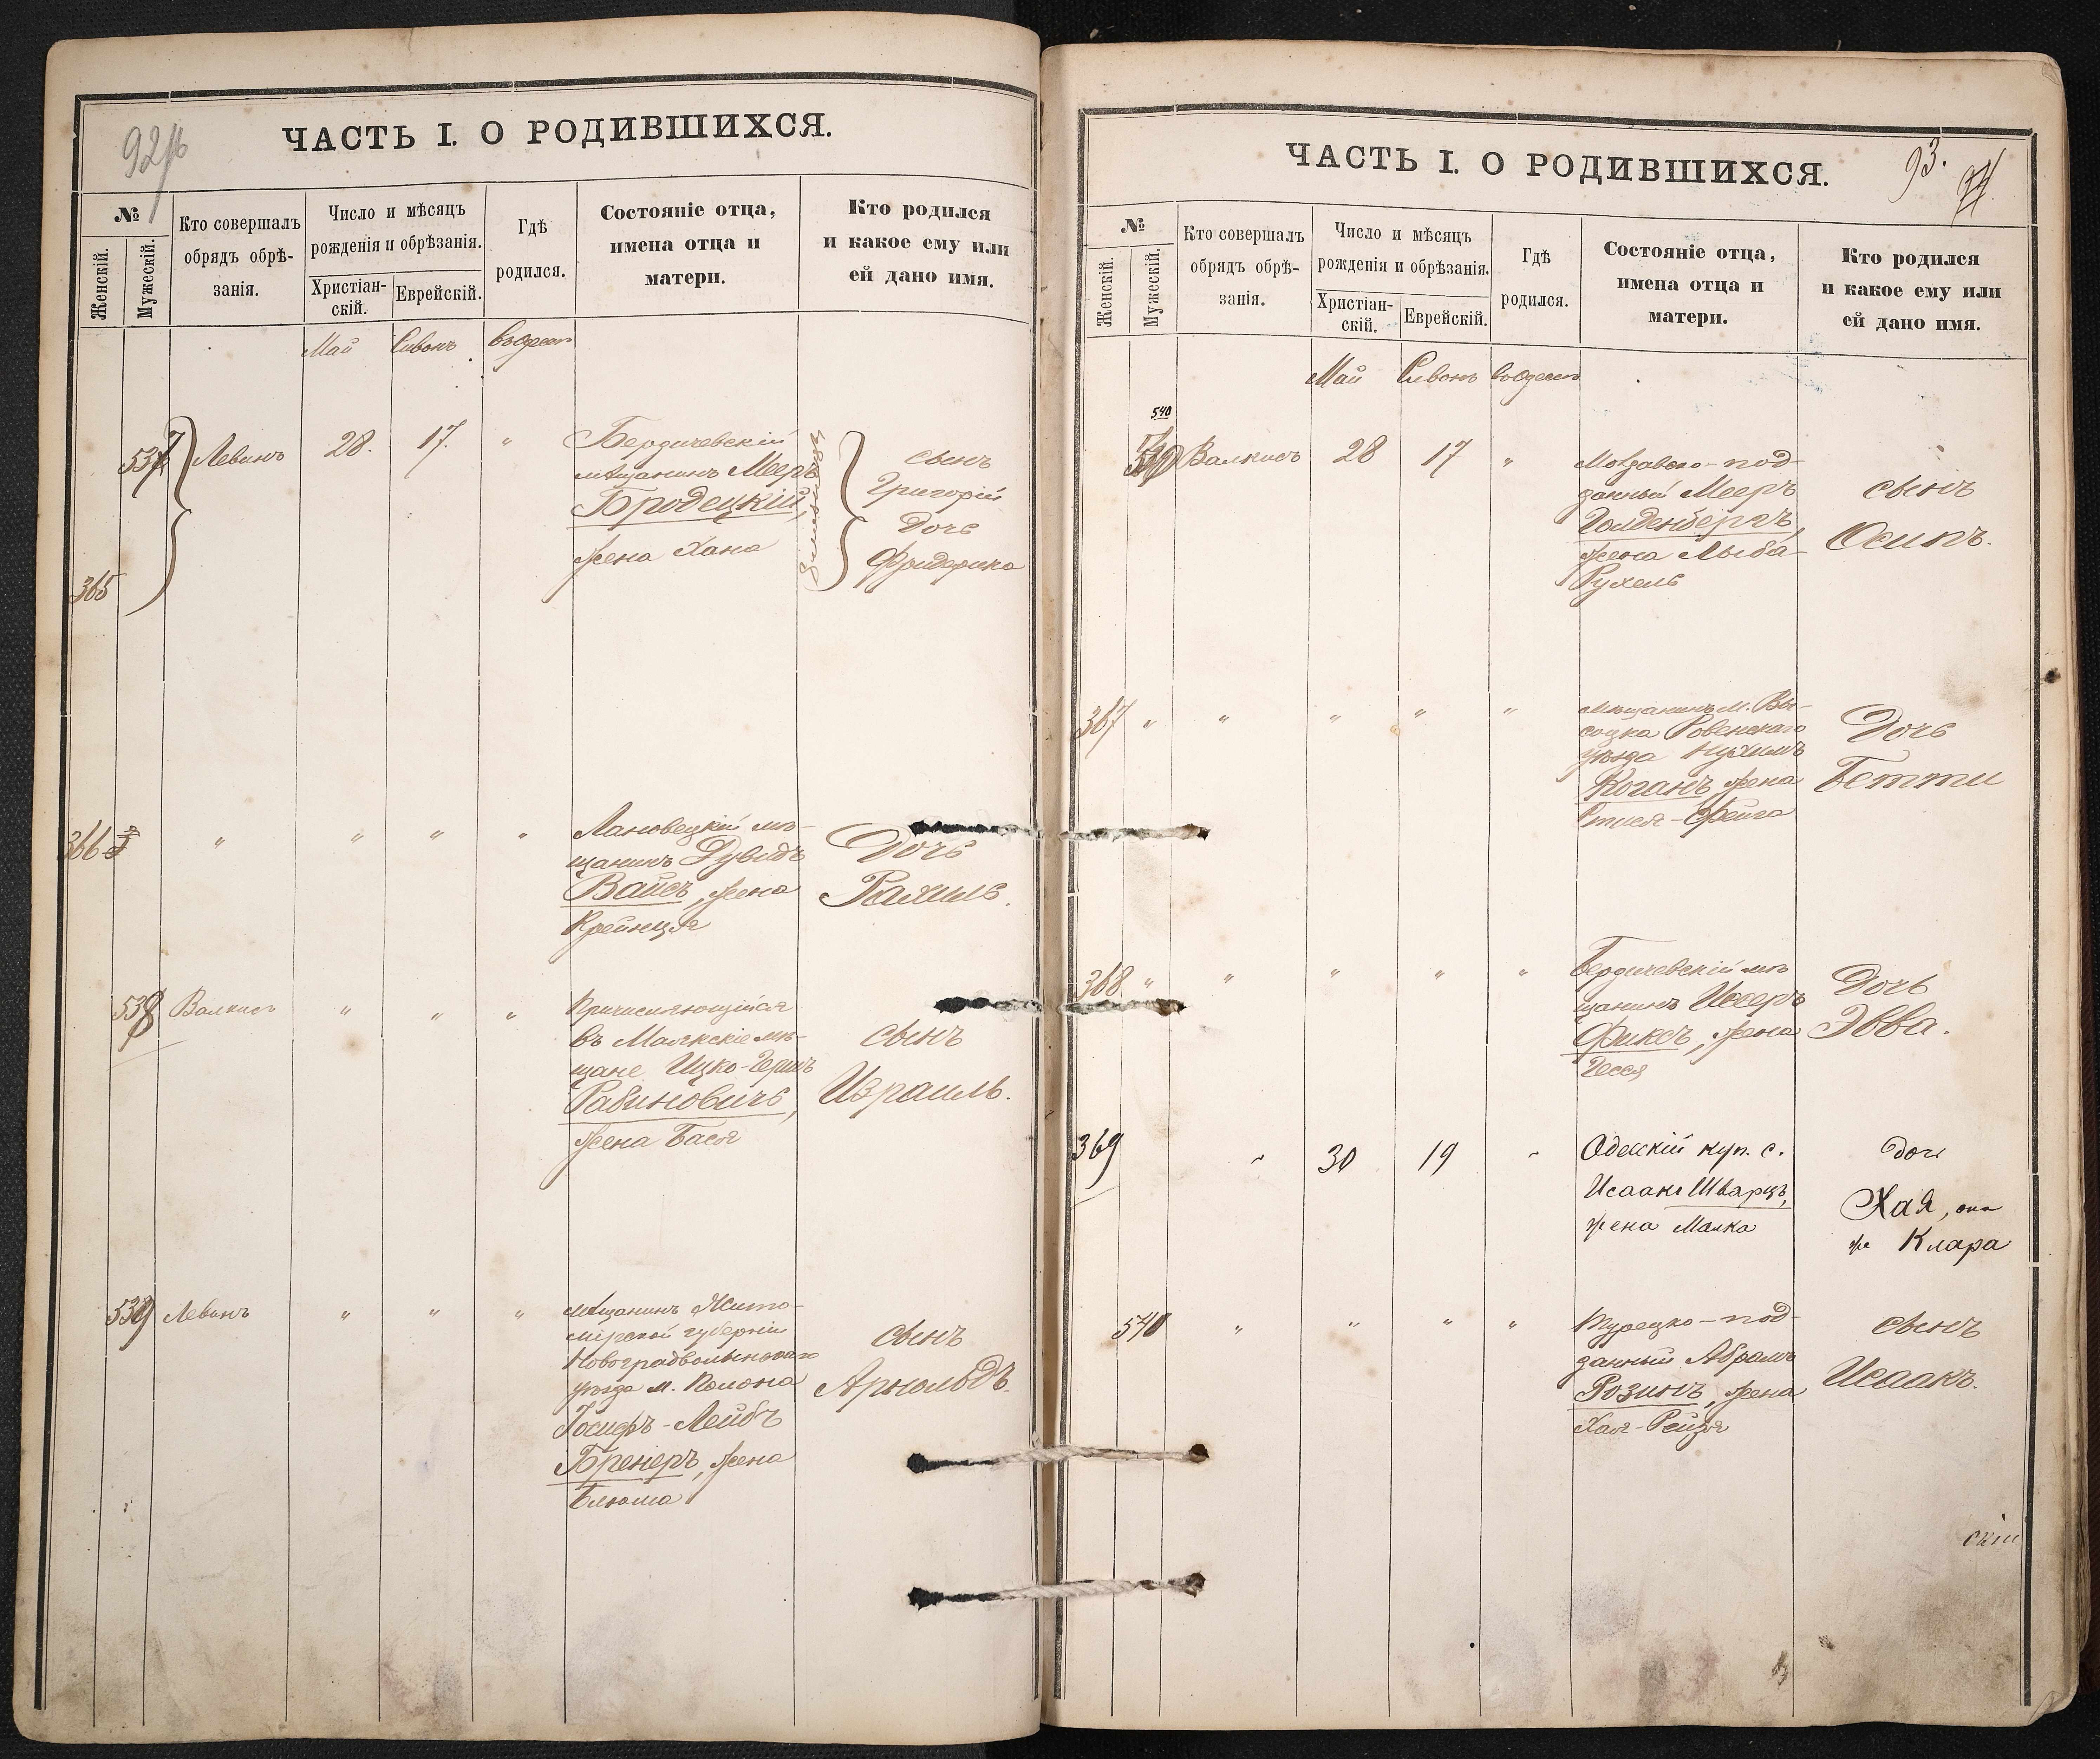 92 об
ЧАСТЬ I. О РОДИВШИХСЯ.
№
Женскій.
Мужескій.
Кто совершалъ
обрядъ обрѣ-
занія.
Число и мѣсяцъ
рожденія и обрѣзанія.
Христіан-
скій.
Еврейскій.
Гдѣ
родился.
Состояніе отца,
имена отца и
матери.
Кто родился
и какое ему или
ей дано имя.
Май Сивонъ въ Одессѣ
537 Левинъ 28. 17. "
365
Бердичевскій
мѣщанинъ Мееръ
Бродецкій,
жена Хана
сынъ
Григорій
Дочь
Фридерика
366 " " " "
Лановецкій мѣ-
щанинъ Дувидъ
Вайсъ, жена
Крейнця
Дочь
Рахиль.
538 Валкисъ " " "
Причисляющійся
въ Маякскіе мѣ-
щане Ицко-Гершъ
Рабиновичъ,
жена Бася
сынъ
Израиль.
539 Левинъ " " "
мѣщанинъ Жито-
мірской губерніи
Новоградволынскаго
уѣзда м. Полона
Іосифъ-Лейбъ
Бренеръ, жена
Блюма
сынъ
Арнольдъ.
ЧАСТЬ I. О РОДИВШИХСЯ.
93.
№
Женскій.
Мужескій.
Кто совершалъ
обрядъ обрѣ-
занія.
Число и мѣсяцъ
рожденія и обрѣзанія.
Христіан-
скій.
Еврейскій.
Гдѣ
родился.
Состояніе отца,
имена отца и
матери.
Кто родился
и какое ему или
ей дано имя.
Май Сивонъ въ Одессѣ
540
Валкисъ 28 17 "
Молдавско-под-
данный Мееръ
Голденбергъ,
жена Лыба-
Рухель
сынъ
Осипъ.
367 " " " " "
Мѣщанинъ м. Вы-
соцка Ровенскаго
уѣзда Нухимъ
Коганъ жена
Фейга
Дочь
Бетти
368 " " " " "
Бердичевскій мѣ
щанинъ Иссеръ
Фиксъ, жена
Гесся
Дочь
Эвва.
369 " 30 19 "
Одесскій куп. с.
Исаакъ Шварцъ,
жена Малка
дочь
Хая, она
же Клара
540 " " " "
Турецко-под-
данный Абрамъ
Розинъ, жена
Хая-Рейзя
сынъ
Исаакъ.
скій